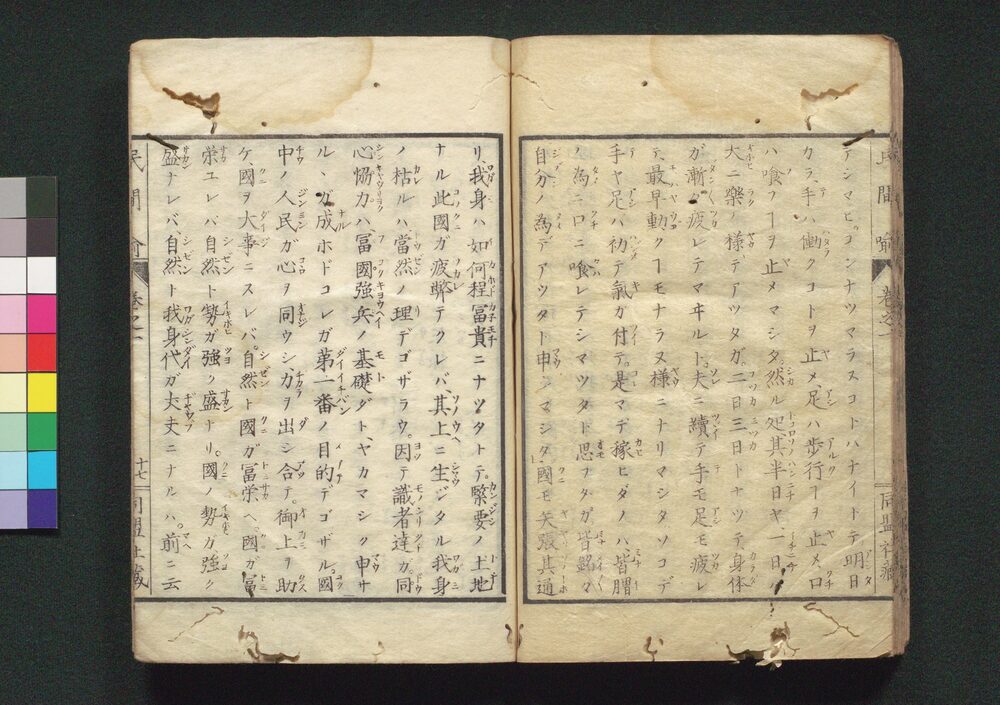 テシマヒ。コンナツマラヌコトハナイトテ明日
カラ、手ハ働クコトヲ止メ、足ハ歩行ヿヲ止メ、口
ハ喰フヿヲ止メマシタ。然ル処其半日ヤ、一日ハ
大ニ樂ノ様デアツタガ、二日三日トナツテ身体
ガ漸々疲レテマヰルト。夫ニ續テ手モ足モ疲レ
テ、最早動クヿモナラヌ様ニナリマシタ。ソコデ
手ヤ足ハ初テ氣ガ付テ。是マデ稼ヒダノハ、皆胃
ノ為ニロニ喰レテシマツタト思ヲタガ皆銘々
自分ノ為デアツタト申シマシタ。國モ矢張其通
リ、我身ハ如何程冨貴ニナツタトテ。緊要ノ土地
ナル此國ガ疲弊テクレバ、其上ニ生ジタル我身
ノ枯ルハ、當然ノ理デゴザラウ。因テ識者達ガ、同
心協力ハ、冨國強兵ノ基礎ダト、ヤカマシク申サ
ル、ガ成ホドコレガ第一番ノ目的デゴザル。國
中ノ人民ガ心ヲ同ウシ、力ヲ出シ合テ。御上ヲ助
ケ、國ヲ大事ニスレバ。自然ト國ガ冨栄ヘ。國ガ冨
栄ユレバ自然ト勢ガ強ク盛ナリ。國ノ勢ガ強ク
盛ナレバ、自然ト我身代ガ大丈夫ニナルハ。前ニ云
民間
巻之一
十七
同盟